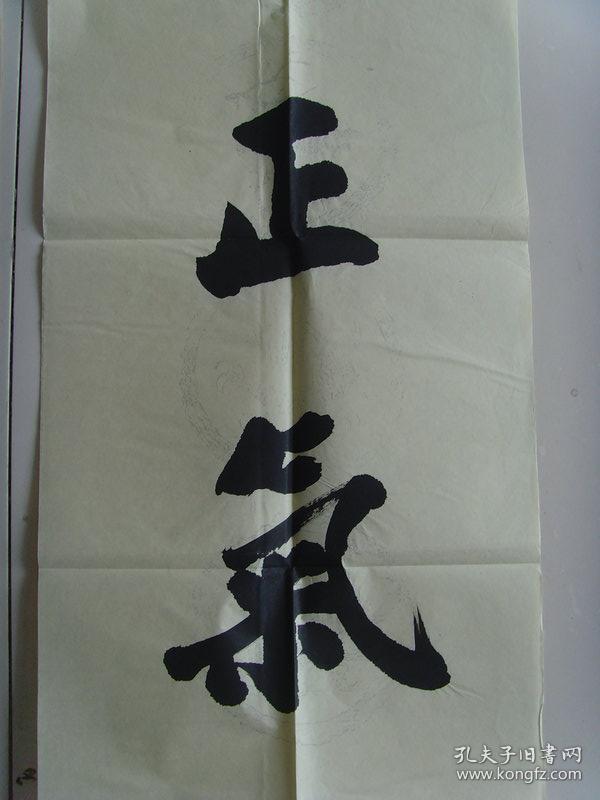 正
氣
孔夫子旧書网
www.kongfz.com